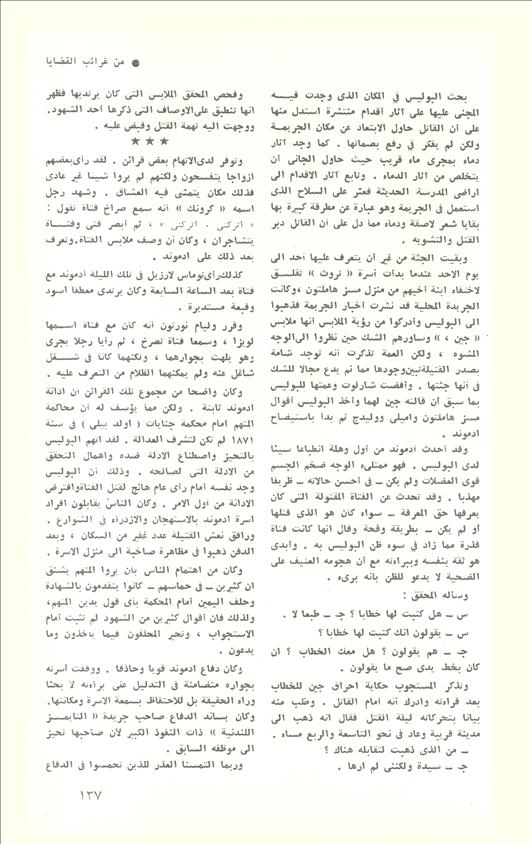 ● من غرائب القضايا
بحث البوليس في المكان الذى وجدت فيه
المجنى عليها على آثار أقدام منتشرة استدل منها
على أن القاتل حاول الابتعاد عن مكان الجريمة
ولكن لم يفكر في رفع بصماتها . كما وجد آثار
دماء بمجرى ماء قريب حيث حاول الجانى أن
يتخلص من آثار الدماء . وتابع آثار الاقدام الى
اراضى المدرسة الحديثة فعثر على السلاح الذى
استعمل فى الجريمة وهو عبارة عن مطرقة كبيرة بها
بقايا شعر لاصقة ودماء مما دل على أن القاتل دبر
القتل والتشويه .
وبقيت الجثة من غير أن يتعرف عليها أحد الى
يوم الاحد عندما بدأت أسرة « تروث » تقلق
لاختفاء ابنة أخيهم من منزل مسز هاملتون ، وكانت
الجريدة المحلية قد نشرت أخبار الجريمة فذهبوا
الى البوليس وأدركوا من رؤية الملابس أنها ملابس
« جين » ، وساورهم الشك حين نظروا الى الوجه
المشوه ، ولكن العمة تذكرت أنه توجد شامة
بصدر القتيلة تبين وجودها مما لم يدع مجالا للشك
فى أنها جثتها . وأفضت شارلوت وعمتها للبوليس
بما سبق أن قالته جين لهما وأخذ البوليس أقوال
مسز هاملتون واميلى وولبدج ثم بدأ باستيضاح
ادموند .
وقد أحدث أدموند من أول وهلة انطباعا سيئا
لدى البوليس . فهو ممتلىء الوجه ضخم الجسم
قوى العضلات ولم يكن ــ فى أحسن حالاته ــ ظريفا
مهذبا . وقد تحدث عن الفتاة المقتولة التى كان
يعرفها حق المعرفة ــ سواء كان هو الذى قتلها
أو لم يكن ــ بطريقة وقحة وقال انها كانت فتاة
قذرة مما زاد فى سوء ظن البوليس به . وأبدى
هو ثقة بنفسه وببراءته مع أن هجومه العنيف على
الضحية لا يدعو للظن بأنه برىء .
وسأله المحقق :
س ــ هل كتبت لها خطابا ؟ جـ ــ طبعا لا .
س ــ يقولون انك كتبت لها خطابا ؟
جـ ــ هم يقولون ؟ هل معك الخطاب ؟ ان
كان بخط يدى صح ما يقولون .
وتذكر المستجوب حكاية احراق جين للخطاب
بعد قراءته وأدرك أنه أمام القاتل . وطلب منه
بيانا بتحركاته ليلة القتل فقال انه ذهب الى
مدينة قريبة وعاد فى نحو التاسعة والربع مساء .
ــ من الذى ذهبت لتقابله هناك ؟
جـ ــ سيدة ولكننى لم ارها .
وفحص المحقق الملابس التى كان يرتديها فظهر
أنها تنطبق على الاوصاف التى ذكرها أحد الشهود.
ووجهت اليه تهمة القتل وقبض عليه .
★ ★ ★
وتوفر لدى الاتهام بعض قرائن . لقد رأى بعضهم
أزواجا يتفسحون ولكنهم لم يروا شيئا غير عادى
فذلك مكان يتمشى فيه العشاق . وشهد رجل
اسمه « كرونك » أنه سمع صراخ فتاة تقول :
« اتركنى . اتركنى » ، ثم أبصر فتى وفتاة
يتشاجران ، وكان أن وصف ملابس الفتاة.وتعرف
بعد ذلك على ادموند .
كذلك رأى توماس لازيل فى تلك الليلة أدموند مع
فتاة بعد الساعة السابعة وكان يرتدى معطفا اسود
وقبعة مستديرة .
وقرر وليام نورتون أنه كان مع فتاة اسمها
لويزا ، وسمعا فتاة تصرخ ، ثم رأيا رجلا يجرى
وهو يلهث بجوارهما ، ولكنهما كانا فى شغل
شاغل عنه ولم يمكنهما الظلام من التعرف عليه .
وكان واضحا من مجموع تلك القرائن أن ادانة
ادموند ثابتة . ولكن مما يؤسف له أن محاكمة
المتهم أمام محكمة جنايات ( اولد بيلى ) فى سنة
١٨٧١ لم تكن لتشرف العدالة . لقد اتهم البوليس
بالتحيز واصطناع الادلة ضده واهمال التحقق
من الادلة التى لصالحه . وذلك أن البوليس
وجد نفسه أمام رأى عام هائج لقتل الفتاة وافترض
الادانة من أول الامر . وكان الناس يقابلون أفراد
أسرة ادموند بالاستهجان والازدراء فى الشوارع .
ورافق نعش القتيلة عدد غفير من السكان ، وبعد
الدفن ذهبوا فى مظاهرة صاخبة الى منزل الاسرة .
وكان من اهتمام الناس بأن يروا المتهم يشنق
أن كثيرين ــ فى حماسهم ــ كانوا يتقدمون بالشهادة
وحلف اليمين أمام المحكمة بأى قول يدين المتهم،
ولذلك فان أقوال كثيرين من الشهود لم تثبت أمام
الاستجواب ، وتحير المحلفون فيما يأخذون وما
يدعون .
وكان دفاع ادموند قويا وحاذقا . ووقفت أسرته
بجواره متضامنة فى التدليل على براءته لا بحثا
وراء الحقيقة بل للاحتفاظ بسمعة الاسرة ومكانتها.
وكان يساند الدفاع صاحب جريدة « التايمز
اللندنية » ذات النفوذ الكبير لأن صاحبها تحيز
الى موظفه السابق .
وربما التمسنا العذر للذين تحمسوا فى الدفاع
١٣٧